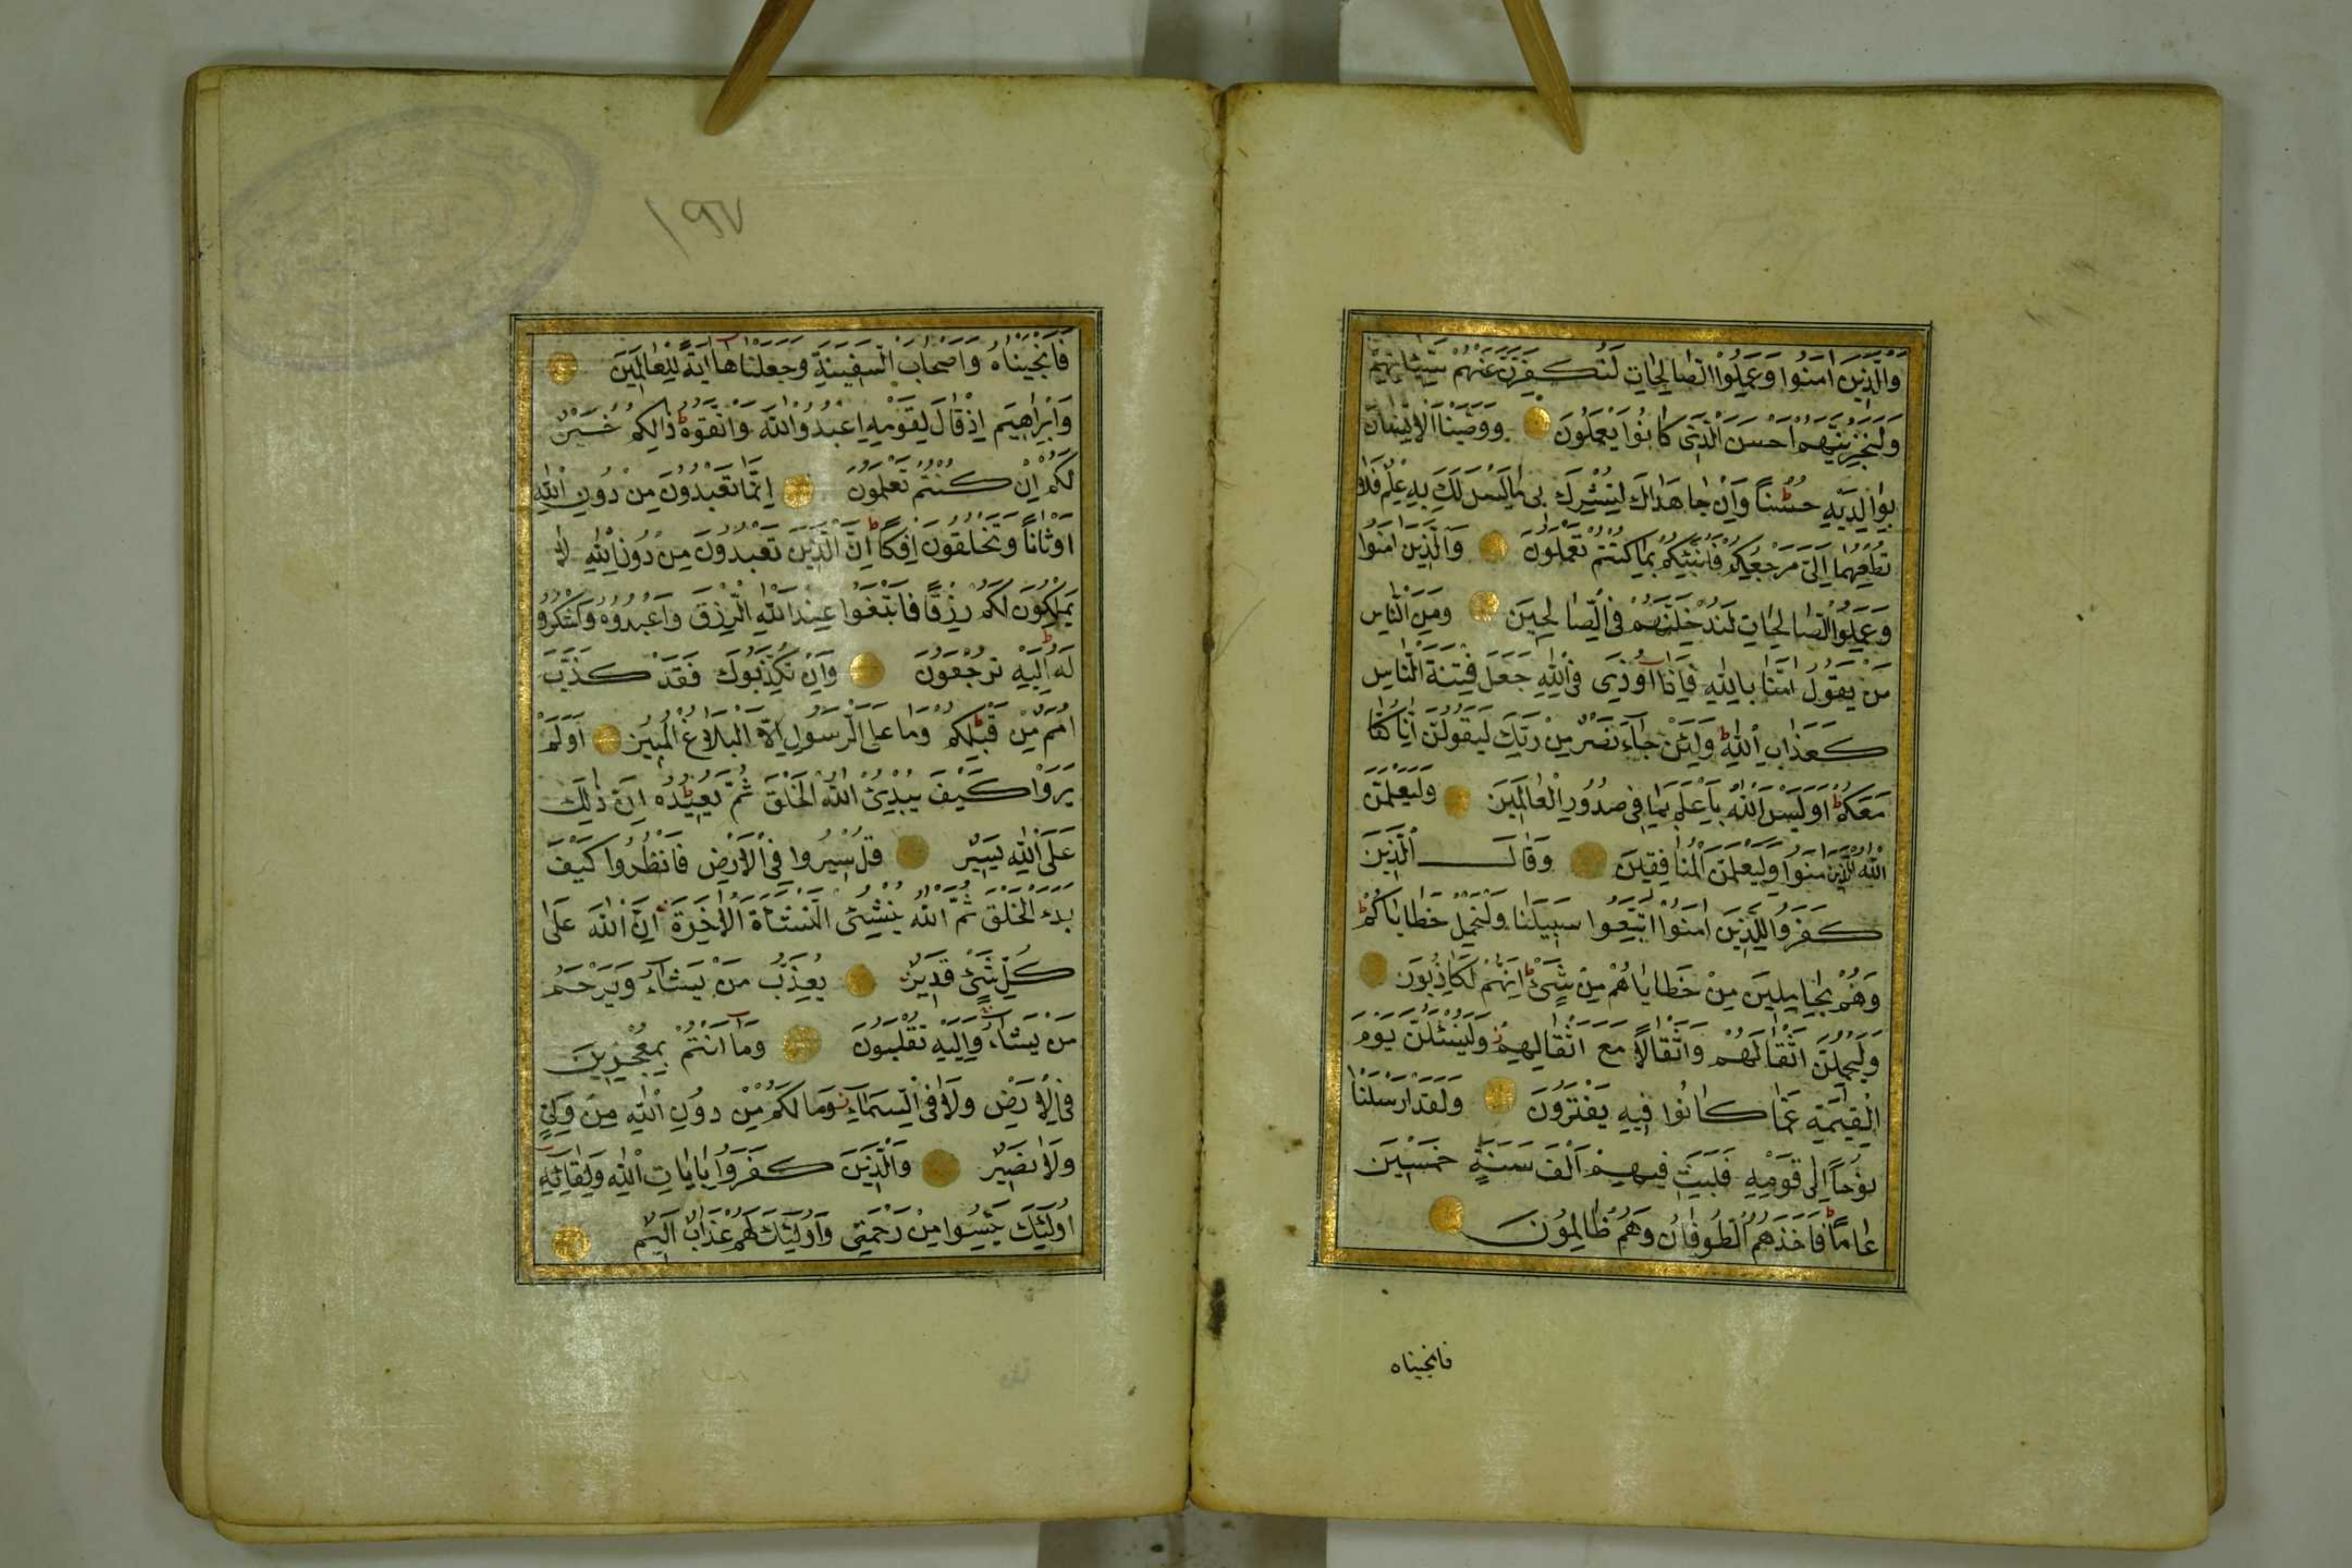 وَالَّذِينَ اٰمَنُوا وَعَمِلُوا الصَّالِحَاتِ لَنُكَفِّرَنَّ عَنْهُمْ سَيِّئَاتِهِمْ
وَلَنَجْزِيَنَّهُمْ اَحْسَنَ الَّذِى كَانُوا يَعْمَلُونَ وَوَصَّيْنَا الْاِنْسَانَ
بِوَالِدَيْهِ حُسْنًا وَاِنْ جَاهَدَاكَ لِتُشْرِكَ بِى مَا لَيْسَ لَكَ بِهِ عِلْمٌ فَلَا
تُطِعْهُمَا اِلَىَّ مَرْجِعُكُمْ فَاُنَبِّئُكُمْ بِمَا كُنْتُمْ تَعْمَلُونَ وَالَّذِينَ اٰمَنُوا
وَعَمِلُوا الصَّالِحَاتِ لَنُدْخِلَنَّهُمْ فِى الصَّالِحِينَ وَمِنَ النَّاسِ
مَنْ يَقُولُ اٰمَنَّا بِاللّٰهِ فَاِذَا اُوذِىَ فِى اللّٰهِ جَعَلَ فِتْنَةَ النَّاسِ
كَعَذَابِ اللّٰهِ وَلَئِنْ جَاۤءَ نَصْرٌ مِنْ رَبِّكَ لَيَقُولُنَّ اِنَّا كُنَّا
مَعَكُمْ اَوَلَيْسَ اللّٰهُ بِاَعْلَمَ بِمَا فِى صُدُورِ الْعَالَمِينَ وَلَيَعْلَمَنَّ
اللّٰهُ الَّذِينَ اٰمَنُوا وَلَيَعْلَمَنَّ الْمُنَافِقِينَ وَقَالَ الَّذِينَ
كَفَرُوا لِلَّذِينَ اٰمَنُوا اتَّبِعُوا سَبِيلَنَا وَلْنَحْمِلْ خَطَايَاكُمْ
وَهُمْ بِحَامِلِينَ مِنْ خَطَايَاهُمْ مِنْ شَىْءٍ اِنَّهُمْ لَكَاذِبُونَ
وَلَيَحْمِلُنَّ اَثْقَالَهُمْ وَاَثْقَالًا مَعَ اَثْقَالِهِمْ وَلَيُسْئَلُنَّ يَوْمَ
الْقِيٰمَةِ عَمَّا كَانُوا فِيهِ يَفْتَرُونَ وَلَقَدْ اَرْسَلْنَا
نُوحًا اِلٰى قَوْمِهِ فَلَبِثَ فِيهِمْ اَلْفَ سَنَةٍ خَمْسِينَ
عَامًا فَاَخَذَهُمُ الطُّوفَانُ وَهُمْ ظَالِمُونَ
فانجيناه
١٩٧
فَاَنْجَيْنَاهُ وَاَصْحَابَ السَّفِينَةِ وَجَعَلْنَاهَا اٰيَةً لِلْعَالَمِينَ
وَاِبْرٰهِيمَ اِذْ قَالَ لِقَوْمِهِ اعْبُدُوا اللّٰهَ وَاتَّقُوهُ ذٰلِكُمْ خَيْرٌ
لَكُمْ اِنْ كُنْتُمْ تَعْلَمُونَ اِنَّمَا تَعْبُدُونَ مِنْ دُونِ اللّٰهِ
اَوْثَانًا وَتَخْلُقُونَ اِفْكًا اِنَّ الَّذِينَ تَعْبُدُونَ مِنْ دُونِ اللّٰهِ لَا
يَمْلِكُونَ لَكُمْ رِزْقًا فَابْتَغُوا عِنْدَ اللّٰهِ الرِّزْقَ وَاعْبُدُوهُ وَاشْكُرُوا
لَهُ اِلَيْهِ تُرْجَعُونَ وَاِنْ تُكَذِّبُوكَ فَقَدْ كَذَّبَ
اُمَمٌ مِنْ قَبْلِكُمْ وَمَا عَلَى الرَّسُولِ اِلَّا الْبَلَاغُ الْمُبِينُ اَوَلَمْ
يَرَوْا كَيْفَ يُبْدِئُ اللّٰهُ الْخَلْقَ ثُمَّ يُعِيدُهُ اِنَّ ذٰلِكَ
عَلَى اللّٰهِ يَسِيرٌ قُلْ سِيرُوا فِى الْاَرْضِ فَانْظُرُوا كَيْفَ
بَدَءَ الْخَلْقَ ثُمَّ اللّٰهُ يُنْشِئُ النَّشْاَةَ الْاٰخِرَةَ اِنَّ اللّٰهَ عَلٰى
كُلِّ شَىْءٍ قَدِيرٌ يُعَذِّبُ مَنْ يَشَاۤءُ وَيَرْحَمُ
مَنْ يَشَاۤءُ وَاِلَيْهِ تُقْلَبُونَ وَمَا اَنْتُمْ بِمُعْجِزِينَ
فِى الْاَرْضِ وَلَا فِى السَّمَاۤءِ وَمَا لَكُمْ مِنْ دُونِ اللّٰهِ مِنْ وَلِىٍّ
وَلَا نَصِيرٍ وَالَّذِينَ كَفَرُوا بِاٰيَاتِ اللّٰهِ وَلِقَاۤئِهِ
اُولٰۤئِكَ يَئِسُوا مِنْ رَحْمَتِى وَاُولٰۤئِكَ لَهُمْ عَذَابٌ اَلِيمٌ